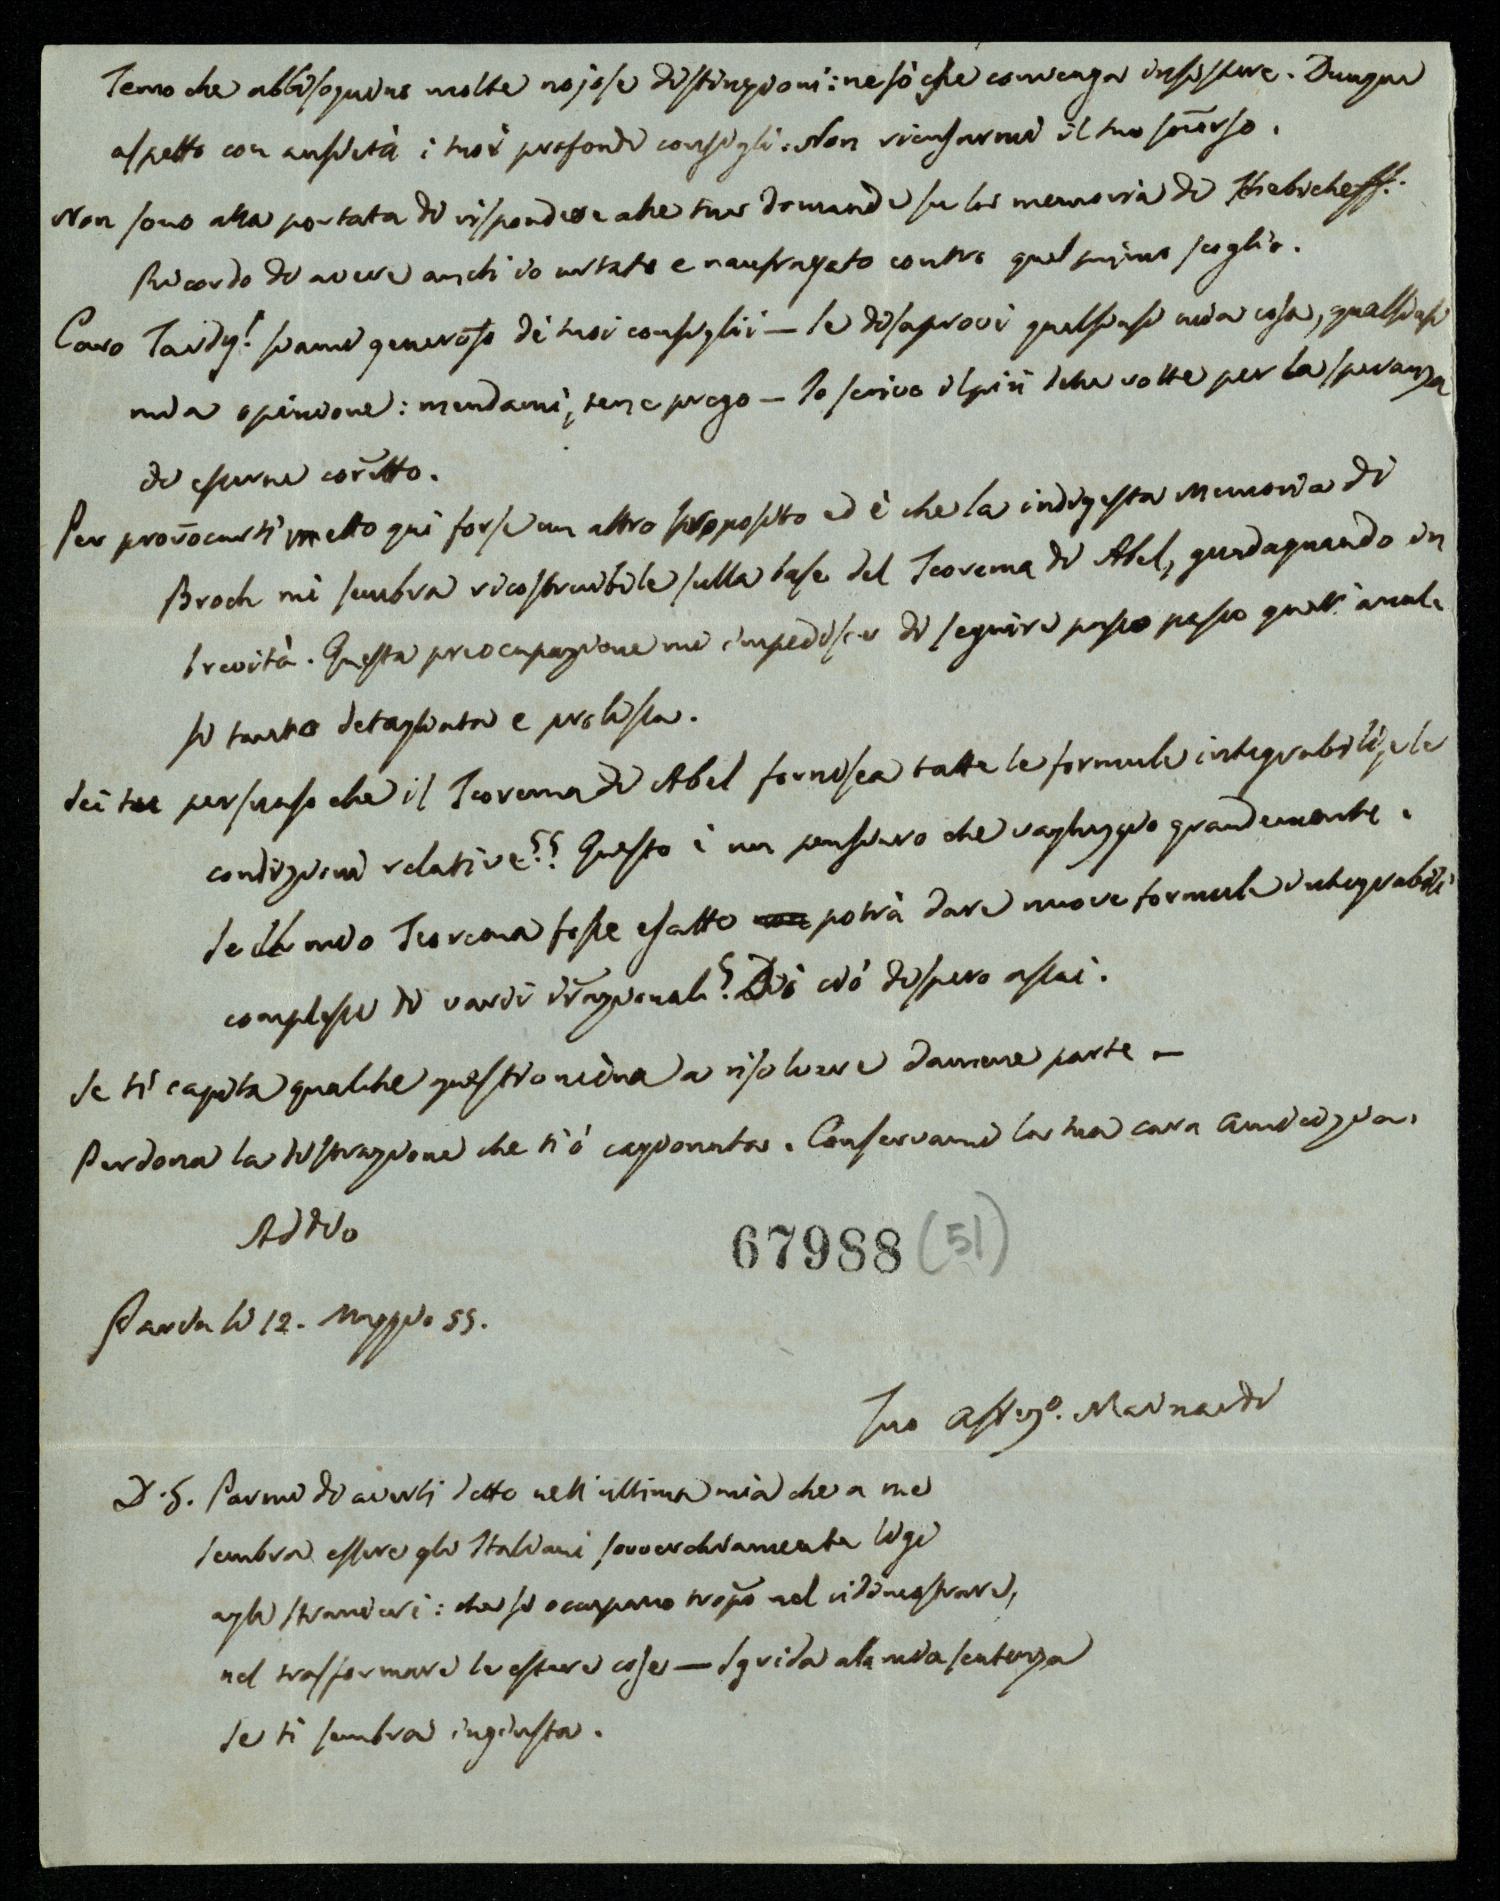 Temo che abbisognino molte nojose distinzioni: ne so che convenga insistere. Dunque
aspetto con ansietà i tuoi profondi consigli. Non ricusarmi il tuo socorso.
Non sono alla portata di rispondere alle tue domande su la memoria di Tchebicheff.
Ricordo di avere anch'io urtato e naufragato contro quel primo scoglio.
Caro Tardy! siami generoso di tuoi consiglii — se disaprovi qualsiasi mia cosa, qualsiasi
mia opinione: mandami, tene prego — Io scrivo il più delle volte per la speranza
di esserne coretto.
Per provocarti metto qui forse un altro sproposito ed è che la indigesta Memoria di
Broch mi sembra ricostruibile sulla base del Teorema di Abel, guadagnando in
brevità. Questa preocupazione mi impedisce di seguire passo passo quell'anali
si tanto detagliata e prolissa.
Sei tu persuaso che il Teorema di Abel fornisca tutte le formule integrabili, e le
condizioni relative?? Questo è un pensiero che vagheggio grandemente.
Se il mio Teorema fosse esatto potrà dare nuove formule integrabili
complesse di varii irazionali? Di ciò dispero assai.
Se ti capita qualche questioncina a risolvere dammene parte —
Perdona la distrazione che ti ò cagionata. Conservami la tua cara amicizia.
Addio
67988 (51)
Pavia li 12. Maggio 55.
Tuo Aff.mo. Mainardi
D.S. Parmi di averti detto nell'ultima mia che a me
sembra essere gli Italiani soverchiamente ligi
agli stranieri: che si occupano tropo nel ridimostrare,
nel trasformare le estere cose — Sgrida alla mia sentenza
se ti sembra ingiusta.